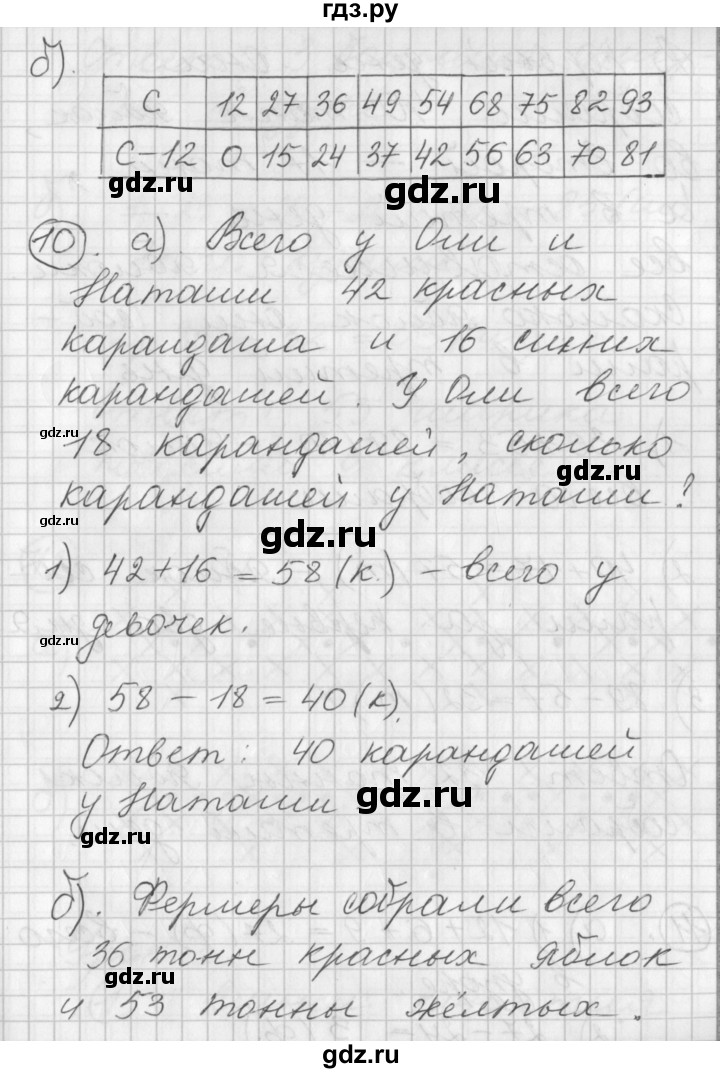 гдз.ру
б).
С 12 27 36 49 54 68 75 82 93
С-12 0 15 24 37 42 56 63 70 81
gdz.ru
gdz.ru
10). а). Всего у Оли и
Наташи 42 красных
карандаша и 16 синих
карандашей. У Оли всего
gdz.ru
18 карандашей, сколько
gdz.ru
карандашей у Наташи?
gdz.ru
gdz.ru
1) 42+16=58(к.) - всего у
девочек.
gdz.ru
2) 58-18=40(к).
Ответ: 40 карандашей
у Наташи
gdz.ru
gdz.ru
б). Фермеры собрали всего
36 тонн красных яблок
gdz.ru
gdz.ru
и 53 тонны жёлтых.
gdz.ru